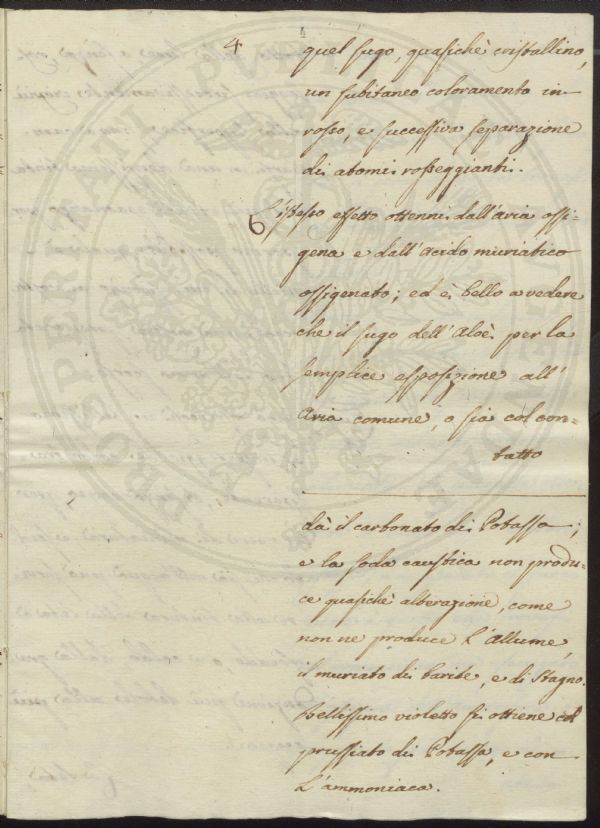 4
quel sugo, quasichè cristallino,
un subitaneo coloramento in
rosso, e successiva separazione
di atomi rosseggianti.
L'istesso effetto ottenni dall'aria ossi-
gena e dall'acido muriatico
ossigenato; ed è bello a vedere
che il sugo dell'Aloè per la
semplice esposizione all'
Aria comune, o sia col con-
tatto
dà il carbonato di Potassa;
e la soda caustica non produ-
ce quasichè alterazione, come
non ne produce l'Allume,
il muriato di barite, e di Stagno.
Bellissimo violetto si ottiene col
prussiato di Potassa, e con
L'ammoniaca.